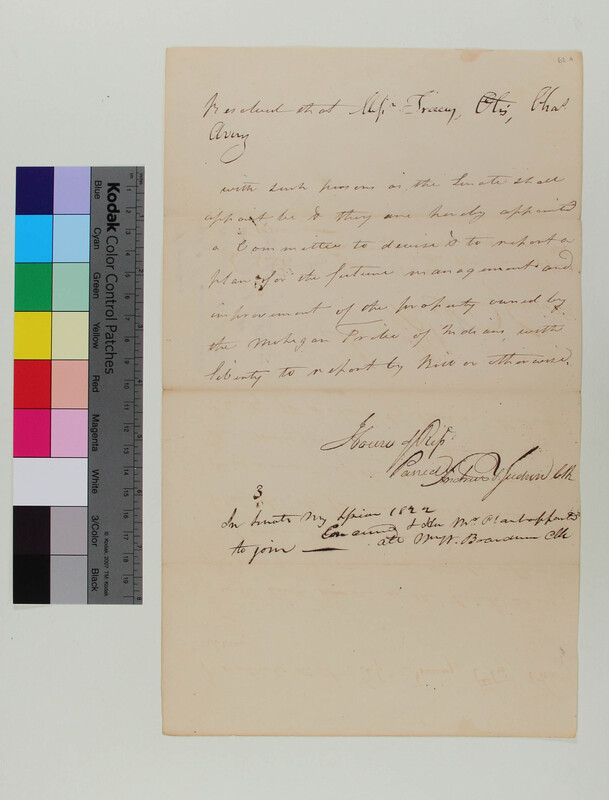 Resolved that Messrs Tracy, Otis, Chas
Avery
with such persons as the Senate shall
appoint be & they are hereby appointed
a Committee to devise & to report a
plan for the future management and
improvement of the property owned by
the Mohegan Tribe of Indians, with
liberty to report by Bill or otherwise.
House of Reps
Passed Andrew T Judson Clk
3
In Senate May Session 1822
Concurred & Hon Mr. Plant appointed
to join
att Wm W. Boardman Clk
Kodak Color Control Patches
Blue
Cyan
Green
Yellow
Red
Magenta
White
3/Color
Black
© Kodak, 2007 TM: Kodak